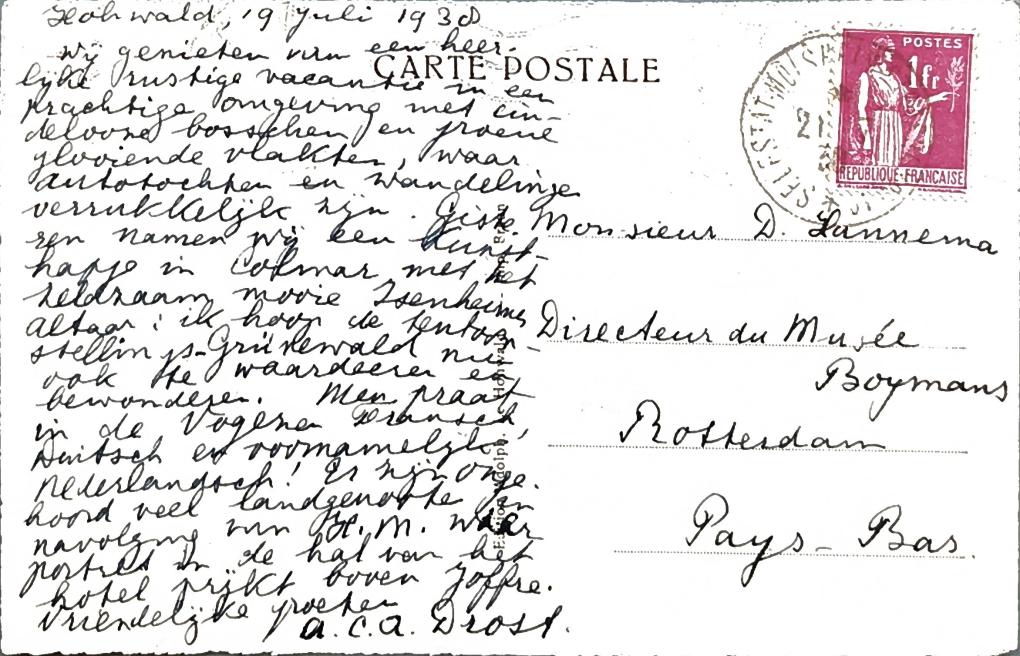 Hohwald, 19 Juli 1938
Wij genieten van een heer-
lijke rustige vacantie in een
prachtige omgeving met ein-
delooze bosschen en groene
glooiende vlakten, waar
autotochten en wandelinge
verrukkelijk zijn. Giste-
ren namen wij een kunst-
hapje in Colmar met het
zeldzaam mooie Isenheimer
altaar: ik hoop de tentoon-
stelling-Grünewald nu
ook te waardeeren en
bewonderen. Men praat
in de Vogezen Fransch,
Duitsch en voornamelijk
Nederlandsch! Er zijn onge-
hoord veel landgenooten in
navolging van H.M. wier
portret in de hal van het
hotel prijkt boven Joffre.
Vriendelijke groeten
A.C.A. Drost.
CARTE POSTALE
POSTES
1fr
REPUBLIQUE FRANCAISE
SELESTAT
21
Monsieur D. Hannema
Directeur du Musée
Boymans
Rotterdam
Pays-Bas.